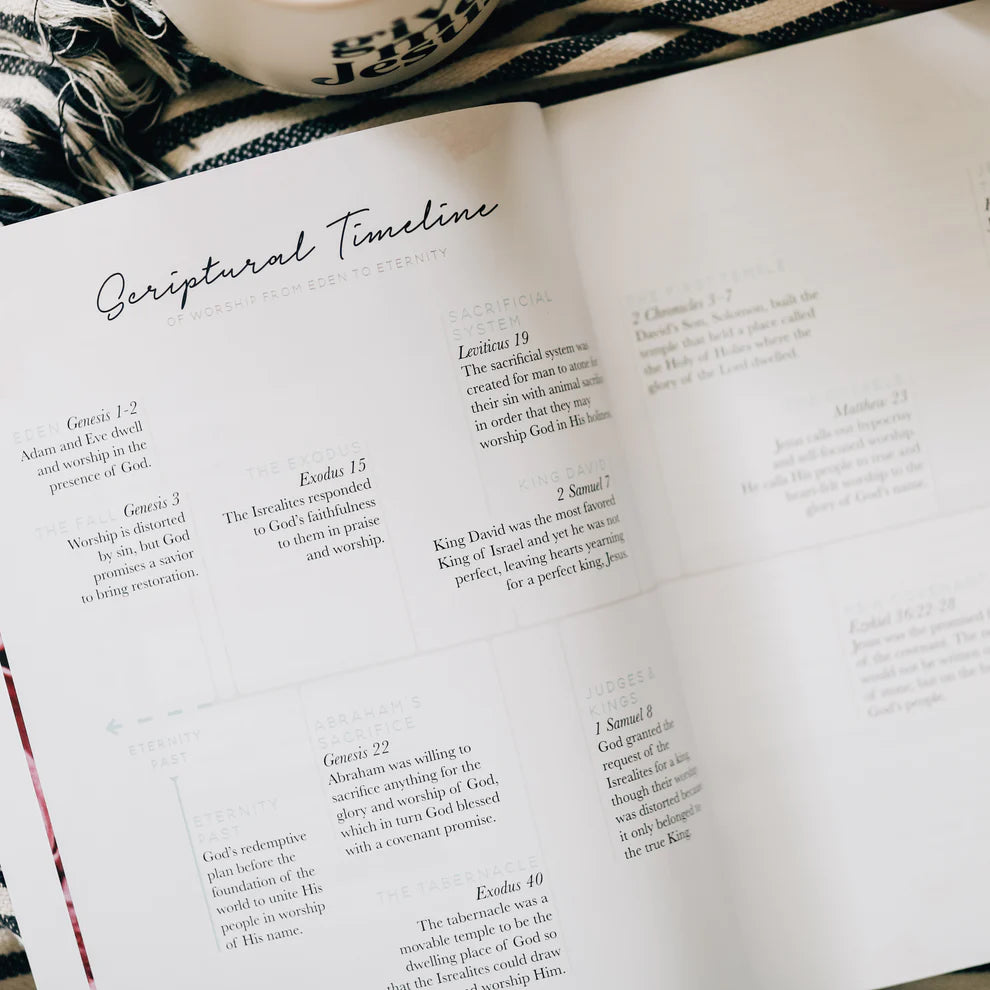 give
me
Jesus
Scriptural Timeline
OF WORSHIP FROM EDEN TO ETERNITY
EDEN Genesis 1-2
Adam and Eve dwell
and worship in the
presence of God.
THE FALL Genesis 3
Worship is distorted
by sin, but God
promises a savior
to bring restoration.
THE EXODUS
Exodus 15
The Isrealites responded
to God's faithfulness
to them in praise
and worship.
SACRIFICIAL
SYSTEM
Leviticus 19
The sacrificial system was
created for man to atone for
their sin with animal sacrifice
in order that they may
worship God in His holiness.
KING DAVID
2 Samuel 7
King David was the most favored
King of Israel and yet he was not
perfect, leaving hearts yearning
for a perfect king, Jesus.
ETERNITY
PAST
ETERNITY
PAST
God's redemptive
plan before the
foundation of the
world to unite His
people in worship
of His name.
ABRAHAM'S
SACRIFICE
Genesis 22
Abraham was willing to
sacrifice anything for the
glory and worship of God,
which in turn God blessed
with a covenant promise.
THE TABERNACLE
Exodus 40
The tabernacle was a
movable temple to be the
dwelling place of God so
that the Isrealites could draw
and worship Him.
JUDGES &
KINGS
1 Samuel 8
God granted the
request of the
Isrealites for a king
though their worship
was distorted because
it only belonged to
the true King.
THE FIRST TEMPLE
2 Chronicles 3-7
David's Son, Solomon, built the
temple that held a place called
the Holy of Holies where the
glory of the Lord dwelled.
Matthew 23
Jesus calls out hypocrisy
and self-focused worship.
He calls His people to true and
heart-felt worship to the
glory of God's name.
Ezekiel 36:22-28
Jesus was the promised
of the covenant. The
would not be written
of stone, but on the
God's people.